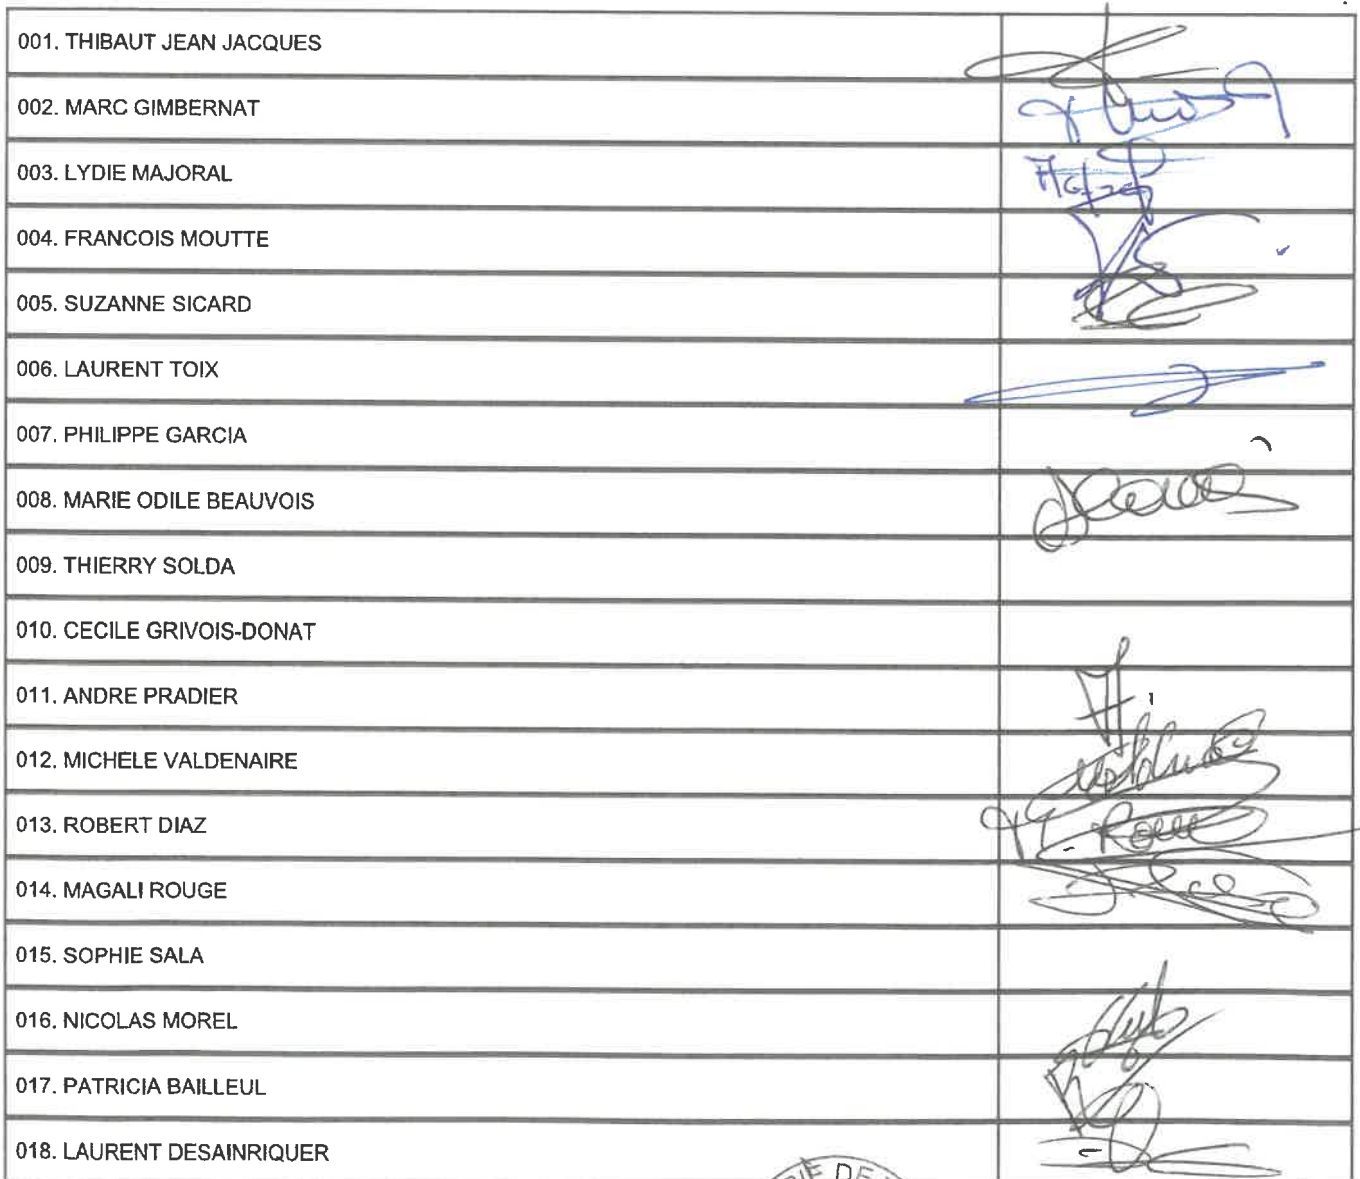 001. THIBAUT JEAN JACQUES
002. MARC GIMBERNAT
003. LYDIE MAJORAL
004. FRANCOIS MOUTTE
005. SUZANNE SICARD
006. LAURENT TOIX
007. PHILIPPE GARCIA
008. MARIE ODILE BEAUVOIS
009. THIERRY SOLDA
010. CECILE GRIVOIS-DONAT
011. ANDRE PRADIER
012. MICHELE VALDENAIRE
013. ROBERT DIAZ
014. MAGALI ROUGE
015. SOPHIE SALA
016. NICOLAS MOREL
017. PATRICIA BAILLEUL
018. LAURENT DESAINRIQUER
DE